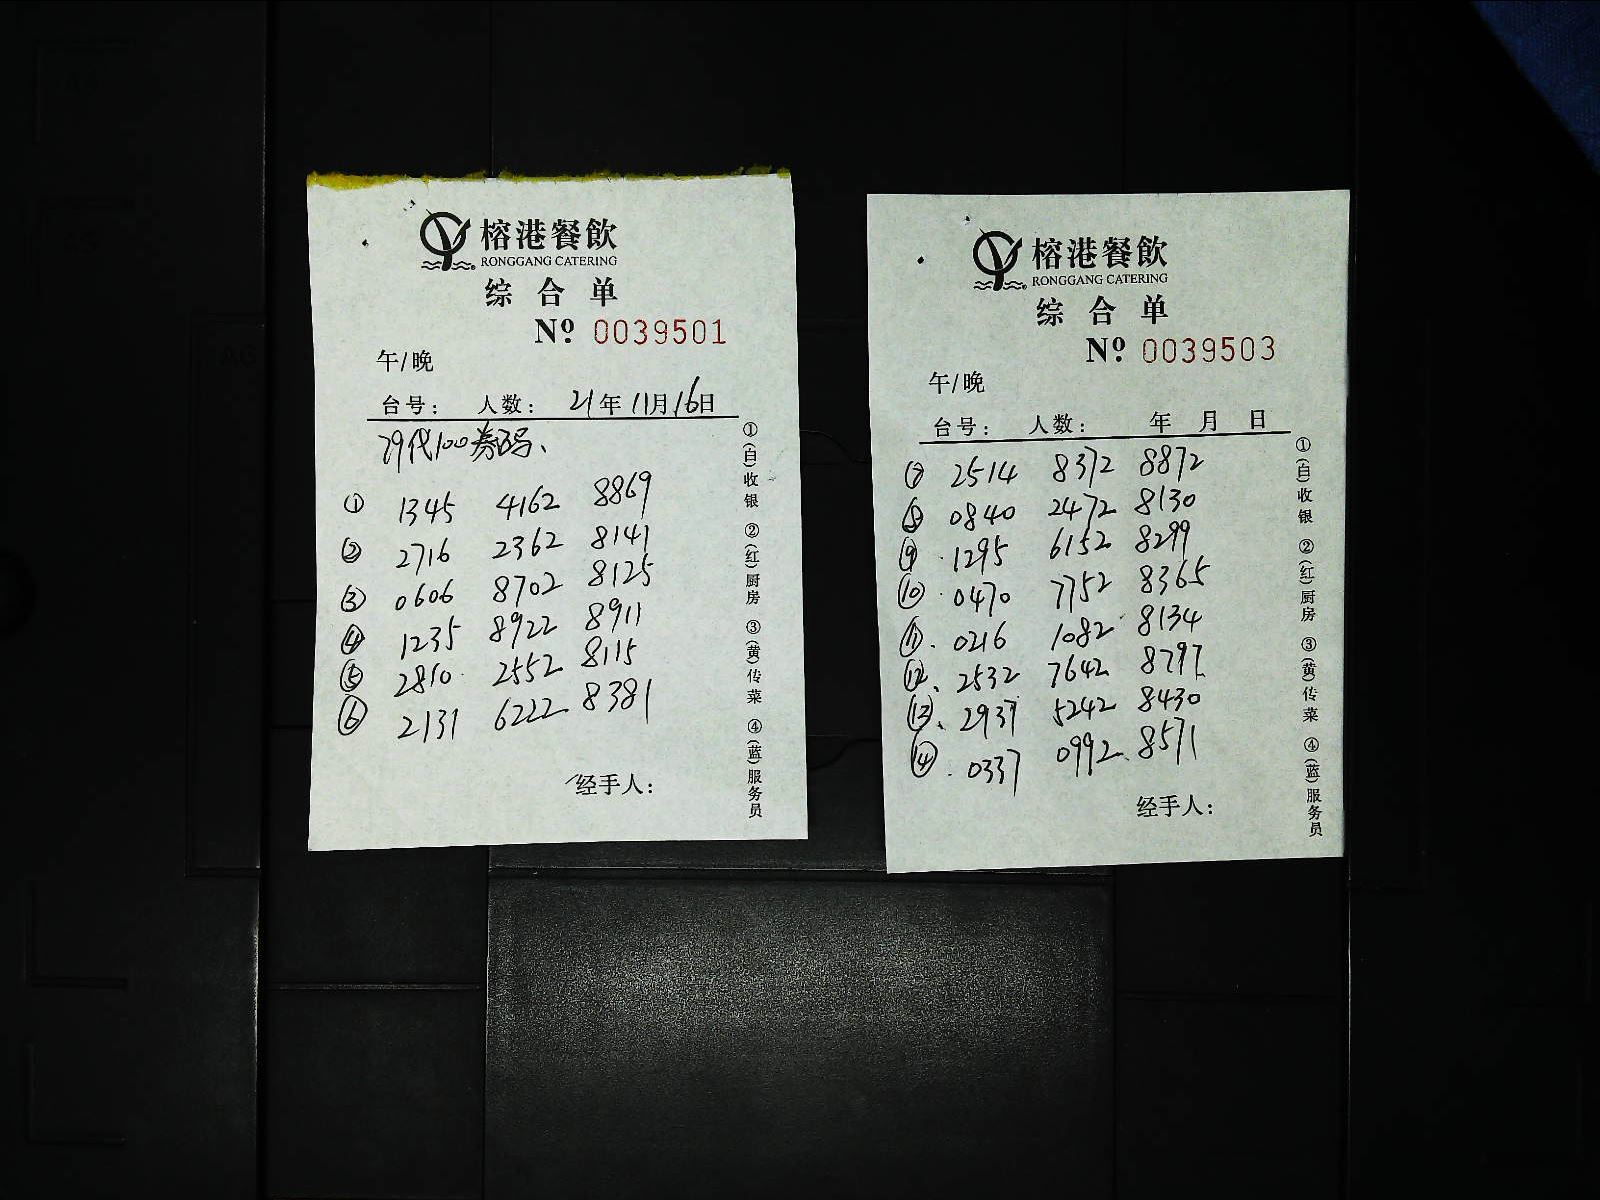 榕港餐飲
RONGGANG CATERING
综合单
Nº 0039501
午/晚
台号： 人数： 21年11月16日
79代100券码、
① 1345 4162 8869
② 2716 2362 8141
③ 0606 8702 8125
④ 1235 8922 8911
⑤ 2810 2552 8115
⑥ 2131 6222 8381
经手人：
①(白)收银 ②(红)厨房 ③(黄)传菜 ④(蓝)服务员
榕港餐飲
RONGGANG CATERING
综合单
Nº 0039503
午/晚
台号： 人数： 年 月 日
⑦ 2514 8372 8872
⑧ 0840 2472 8130
⑨ 1295 6152 8299
⑩ 0470 7752 8365
⑪ 0216 1082 8134
⑫ 2532 7642 8797
⑬ 2937 5242 8430
⑭ 0337 0992 8571
经手人：
①(白)收银 ②(红)厨房 ③(黄)传菜 ④(蓝)服务员